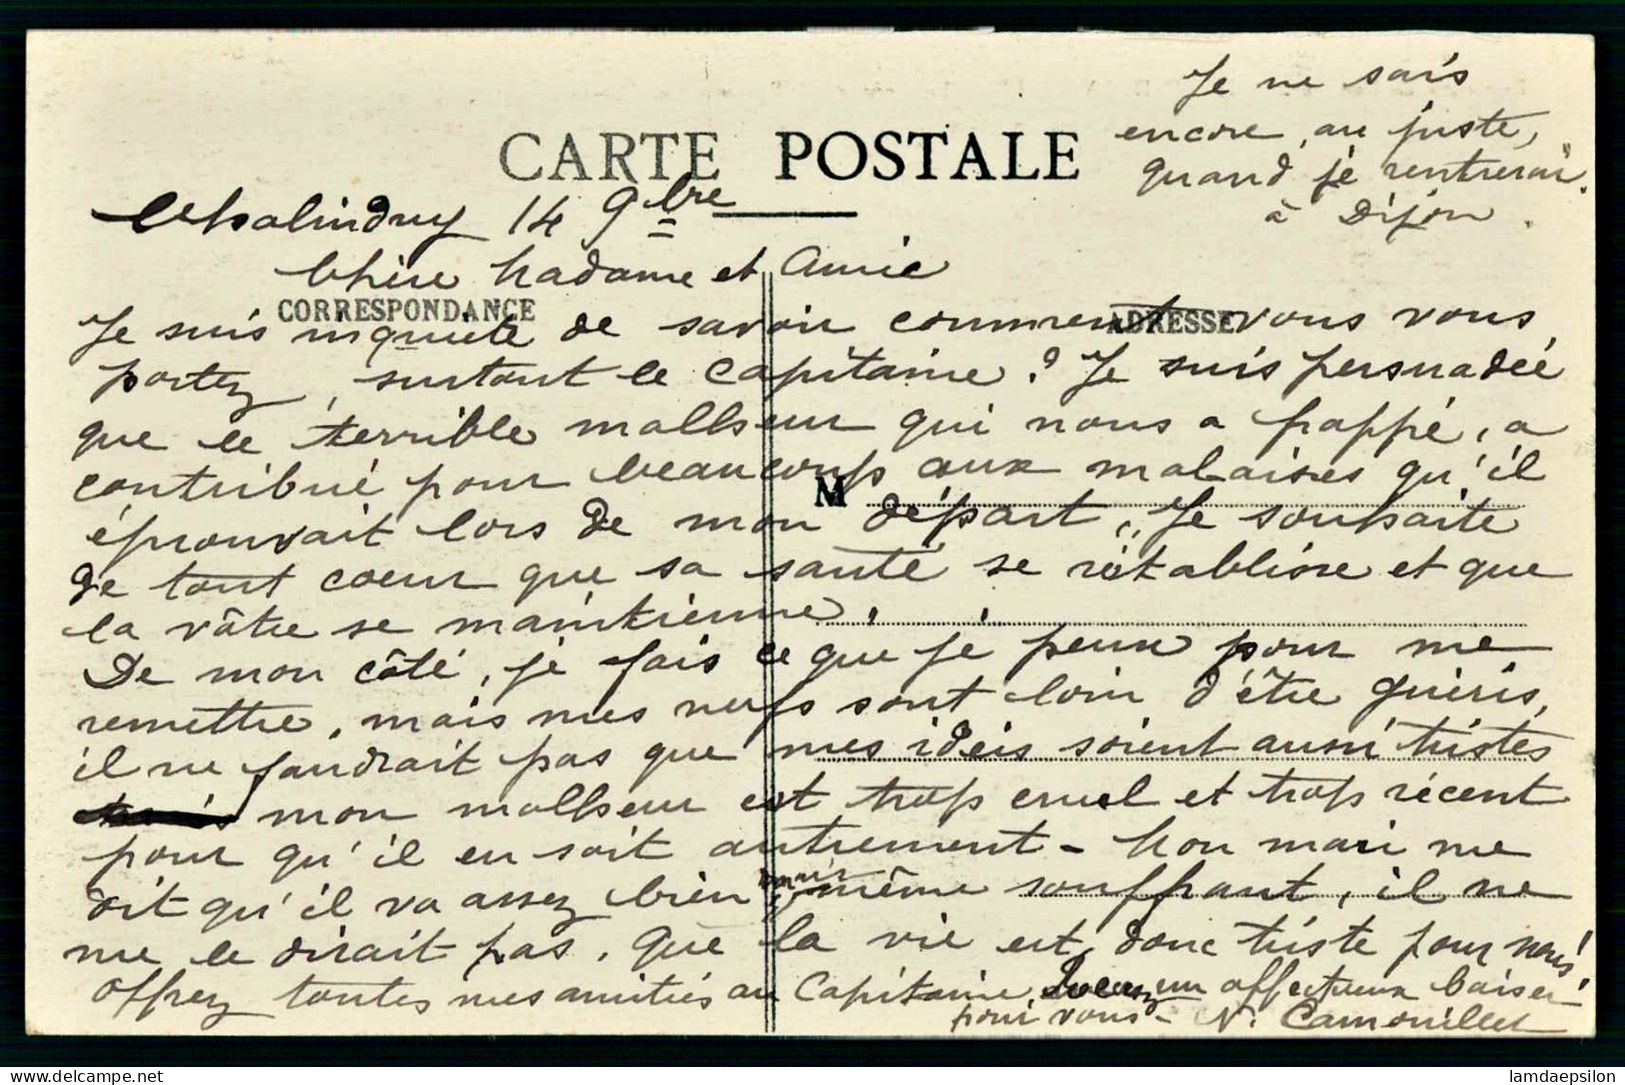 Je ne sais
encore, au juste,
quand je rentrerai
à Dijon.
CARTE POSTALE
Chalindrey 14 9bre
Chère Madame et Amie
CORRESPONDANCE
ADRESSE
Je suis inquiète de savoir comment vous vous
portez, surtout le Capitaine? Je suis persuadée
que le terrible malheur qui nous a frappé, a
contribué pour beaucoup aux malaises qu'il
M
éprouvait lors de mon départ, Je souhaite
de tout coeur que sa santé se rétablisse et que
la vôtre se maintienne.
De mon côté, je fais ce que je peux pour me
remettre, mais mes nerfs sont loin d'être guéris,
il ne faudrait pas que mes idées soient aussi tristes
mon malheur est trop cruel et trop récent
pour qu'il en soit autrement - Mon mari me
dit qu'il va assez bien, mais même souffrant, il ne
me le dirait pas. Que la vie est donc triste pour nous!
Offrez toutes mes amitiés au Capitaine, Recevez un affectueux baiser
pour vous - N. Camouillet
lamdaepsilon